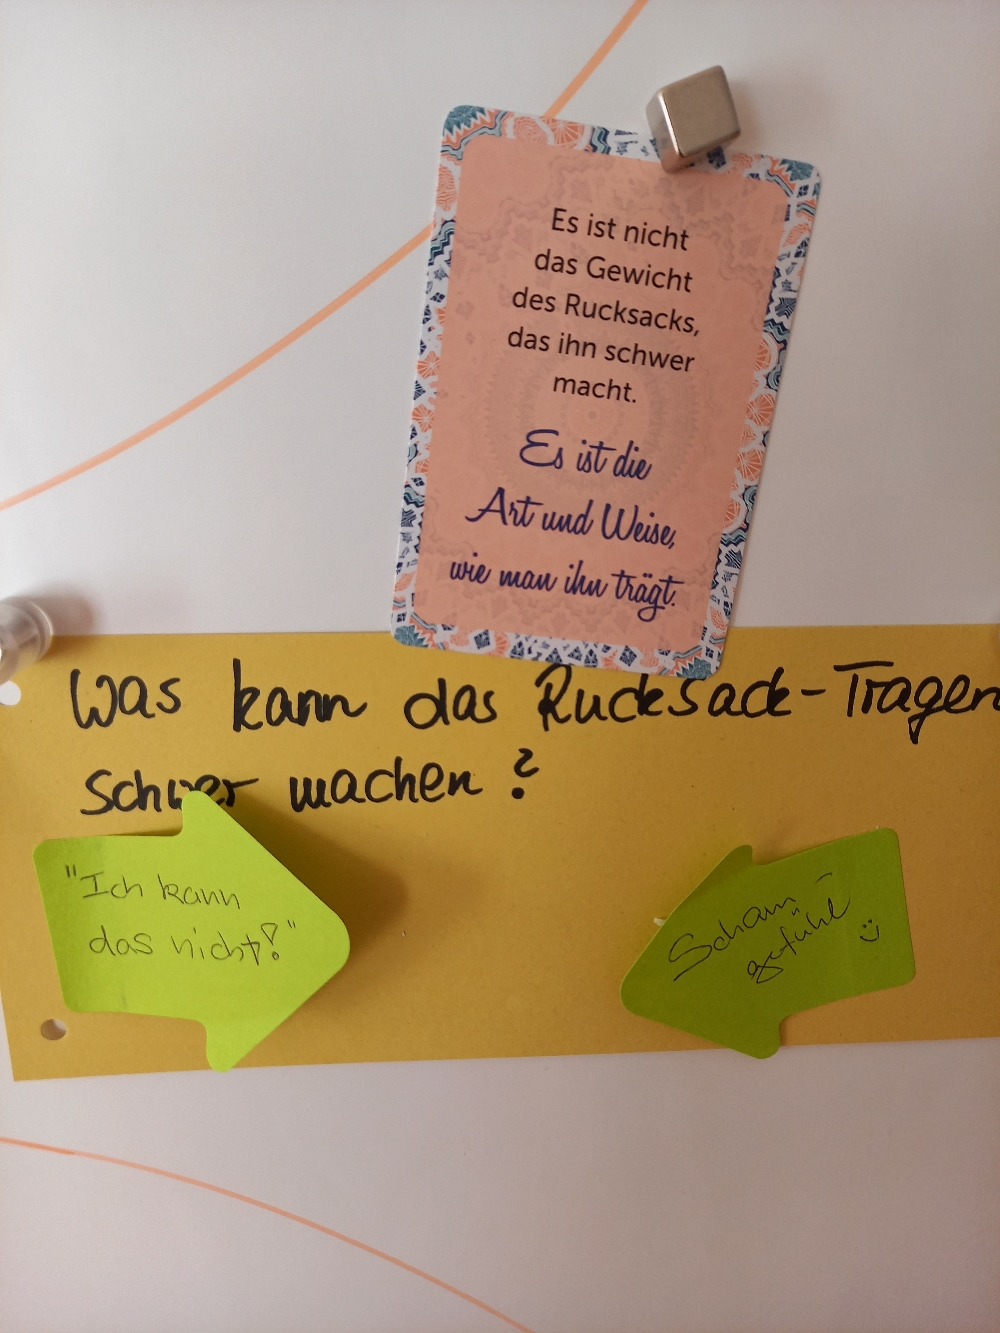 Es ist nicht
das Gewicht
des Rucksacks,
das ihn schwer
macht.
Es ist die
Art und Weise,
wie man ihn trägt.
Was kann das Rucksack-Tragen
schwer machen?
"Ich kann
das nicht!"
Scham-
gefühl